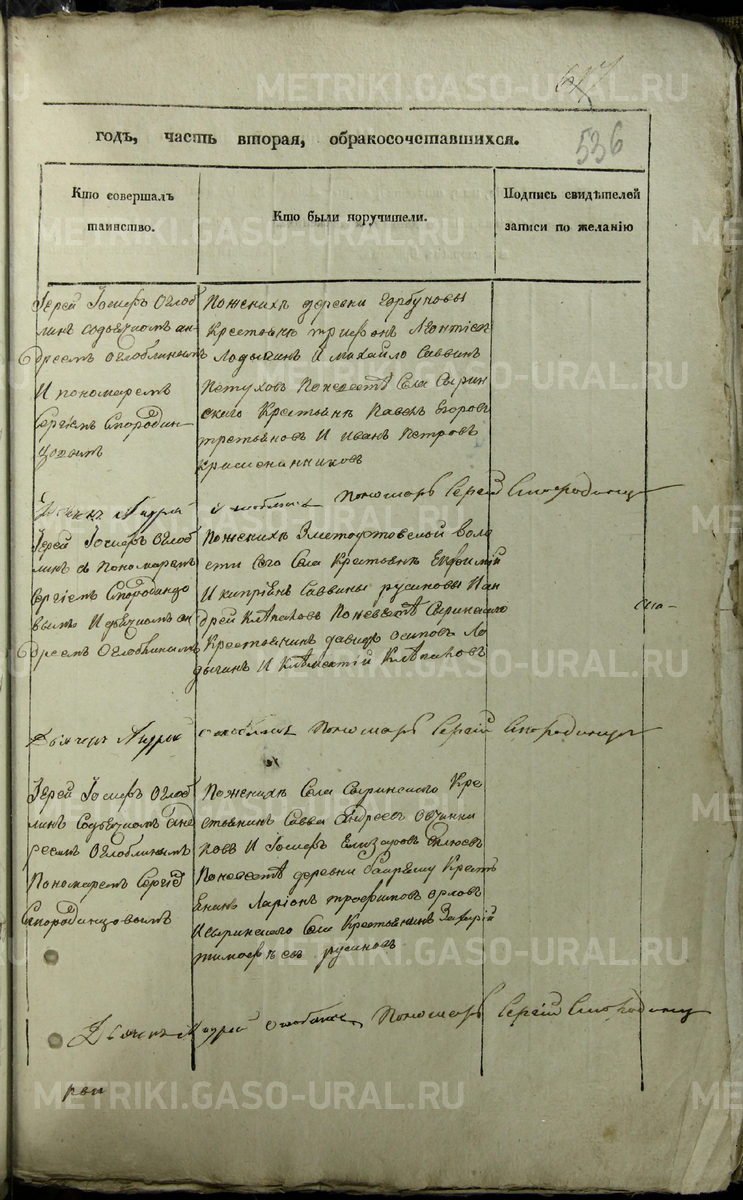 617
METRIKI.GASO-URAL.RU
годъ, часть вторая, обракосочетавшихся.
536
Кто совершалъ
таинство.
Кто были поручители.
Подпись свидѣтелей
записи по желанію
Іерей Іосифъ Оглоб
линъ содьячкомъ ан
дреемъ оглоблинымъ
И пономаремъ
Сергіемъ Смородин
цовымъ
Поженихѣ деревни горбуновы
Крестьянѣ трифонъ Леонтіевъ
Лодыгинъ И михайло Саввинъ
Петухов Поневестѣ Села Сырин
скаго Крестьянѣ Павелъ Егоровъ
третьяковъ И Иванъ Петровъ
Дьячекъ Андрей Оглоблинъ Пономарь Сергій Смородинцовъ
Іерей Іосифъ Оглоб
линъ с Пономаремъ
Сергіемъ Смородинцо
вымъ И дьячкомъ ан
дреемъ Оглоблинымъ
Поженихѣ Златоустовской воло
сти Села Крестьянѣ
И кипріянъ Саввины русиновы И ан
дрей Клѣпаковъ Поневестѣ Сыринскаго
Крестьянинъ давидъ осиповъ Ло
дыгинъ И Клѣментій Клѣпаковъ
Дьячекъ Андрей Оглоблинъ Пономарь Сергій Смородинцовъ
Іерей Іосифъ Оглоб
линъ Содьячкомъ Анд
реемъ Оглоблинымъ
Пономаремъ Сергіе
Смородинцовымъ
Поженихѣ Села Сыринскаго Кре
стьянинъ Савва Андреевъ Овчинни
ковъ И Іосифъ Елизаровъ
Поневестѣ деревни Крестья
Енинъ Ларіонъ трофимовъ орловъ
Исыринскаго Села Крестьянинъ Захарій
тимофѣевъ русиновъ
Дьячекъ Андрей Оглоблинъ Пономарь Сергій Смородинцовъ